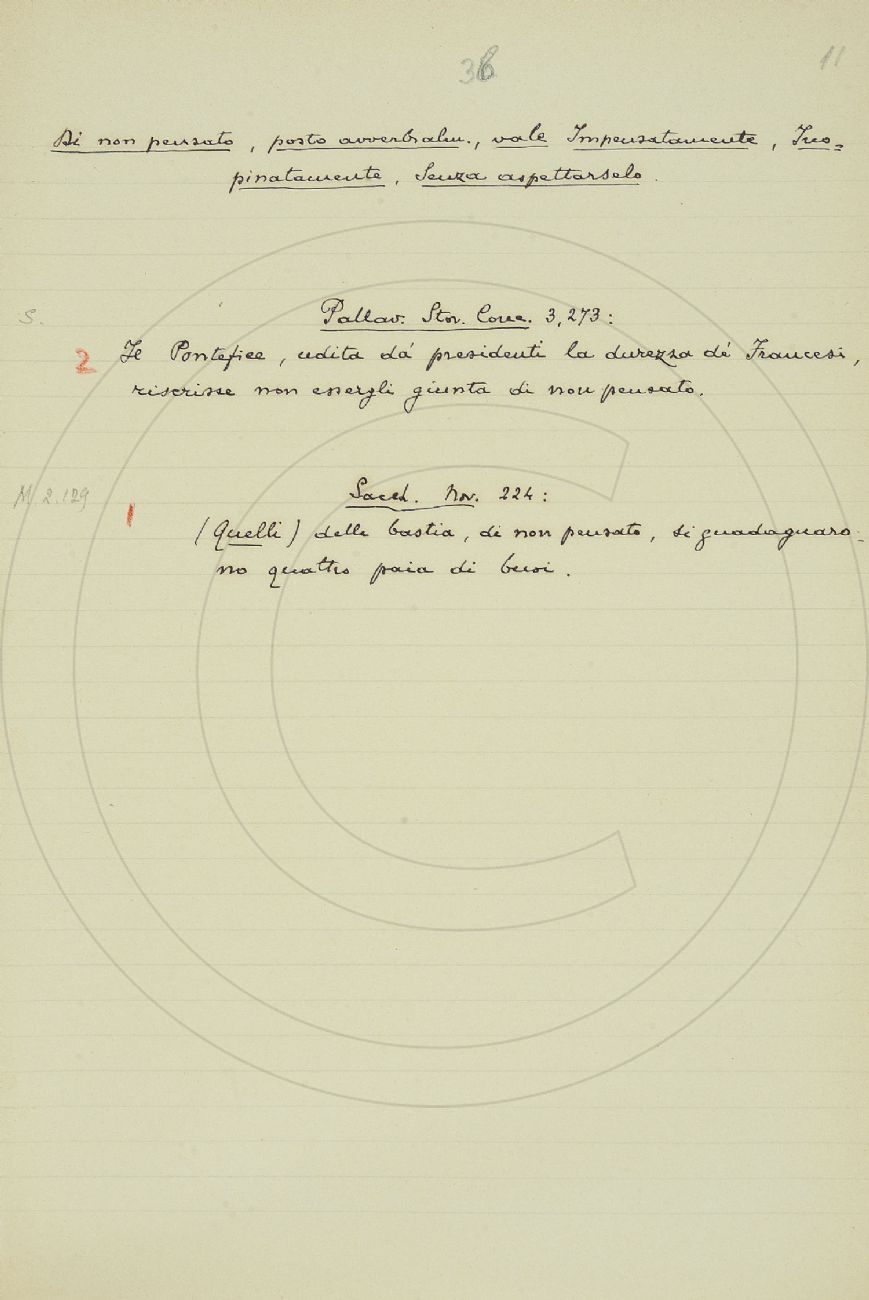 36 11
Di non pensato, posto avverbialm., vale Impensatamente, Ino-
pinatamente, Senza aspettarselo.
Pallav. Stor. Conc. 3, 273:
S.
2 Il Pontefice, udita dá presidenti la durezza dé Francesi,
riscrisse non essergli giunta di non pensato.
M 2.129
Sacch. Nov. 224:
1 (Quelli) della bastia, di non pensato, si guadagnaro-
no quattro paia di buoi.